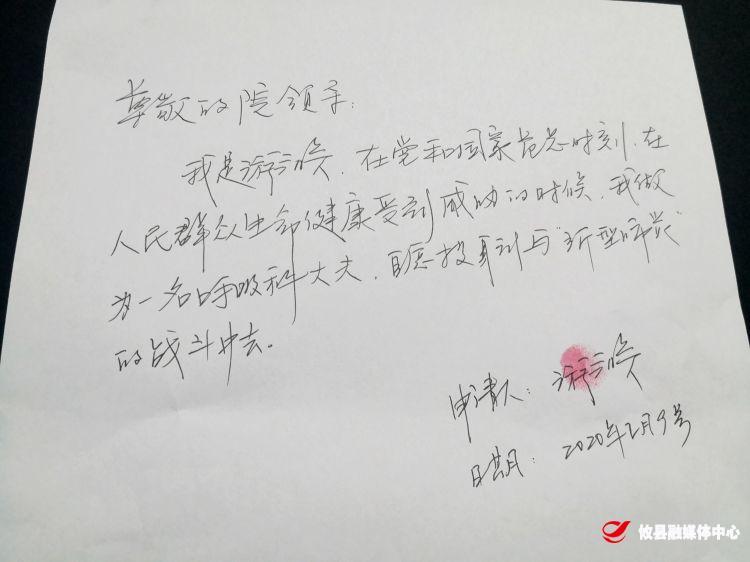 尊敬的院领导:
我是游立癸,在党和国家危急时刻,在
人民群众生命健康受到威胁的时候,我做
为一名呼吸科大夫,自愿投身到与"新型肺炎"
的战斗中去。
申请人:
日期:2020年2月9号
攸县融媒体中心